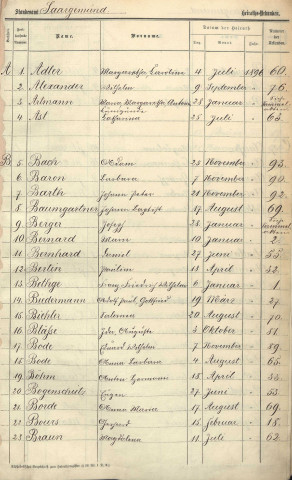 Standesamt Saargemünd Heiraths-Urkunden.
Name. Vorname. Datum der Heirath
A 1 Adler Margaretha Carolina 4 Juli 1896 60.
2 Alexander Wilhelm 9 September 76.
3 Artmann Maria Margaretha 28 Januar
4 Ast Catharina 25 Juli 63.
B 5 Bach Adam 28 November 93.
6 Baron Barbara 7 November 90.
7 Barth Johann Peter 21 November 92.
8 Baumgartner Johann Baptist 17 August 69.
9 Berger Joseph 28 Januar
10 Bernard Maria 10 Januar 2.
11 Bernhard Daniel 27 Juni 55.
12 Bertin Paulina 18 April 32.
13 Bethge Friedrich Wilhelm 6 Januar 1.
14 Biedermann Adolf Paul Gottfried 19 März 27.
15 Bichler Catharina 20 August 70.
16 August 3 Oktober 81.
17 Bode Eduard Wilhelm 7 November 89.
18 Bode Anna Barbara 4 August 65.
19 Böhm Anton Hermann 18 April 33.
20 Bogenschutz Eugen 27 Juni 53.
21 Anna Maria 17 August 69.
22 Bours Gaspard 15 Februar 18.
23 Braun Magdalena 11 Juli 62.